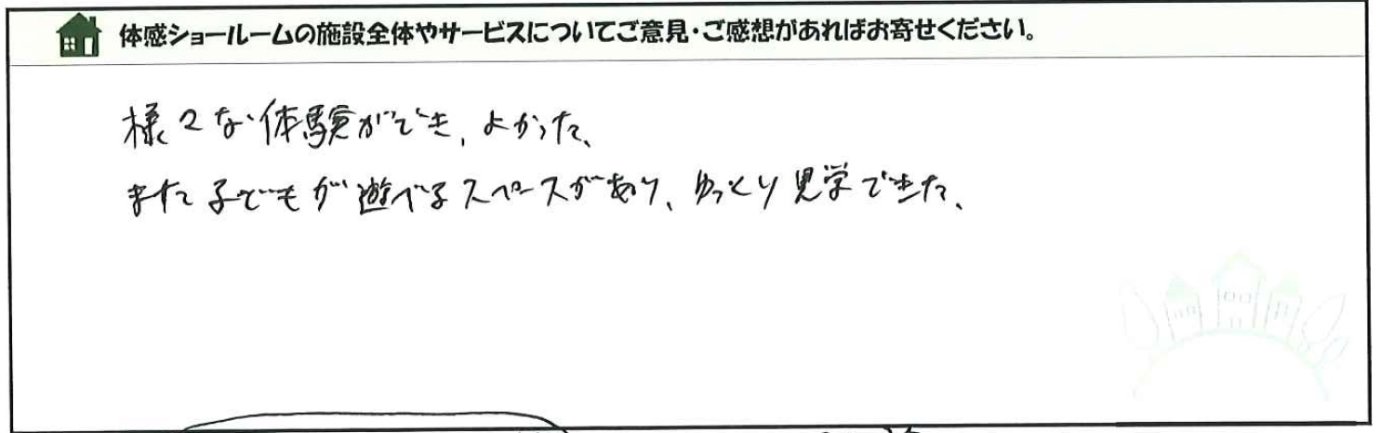 体感ショールームの施設全体やサービスについてご意見・ご感想があればお寄せください。
様々な体験ができ、よかった、
また子どもが遊べるスペースがあり、ゆっくり見学できた、